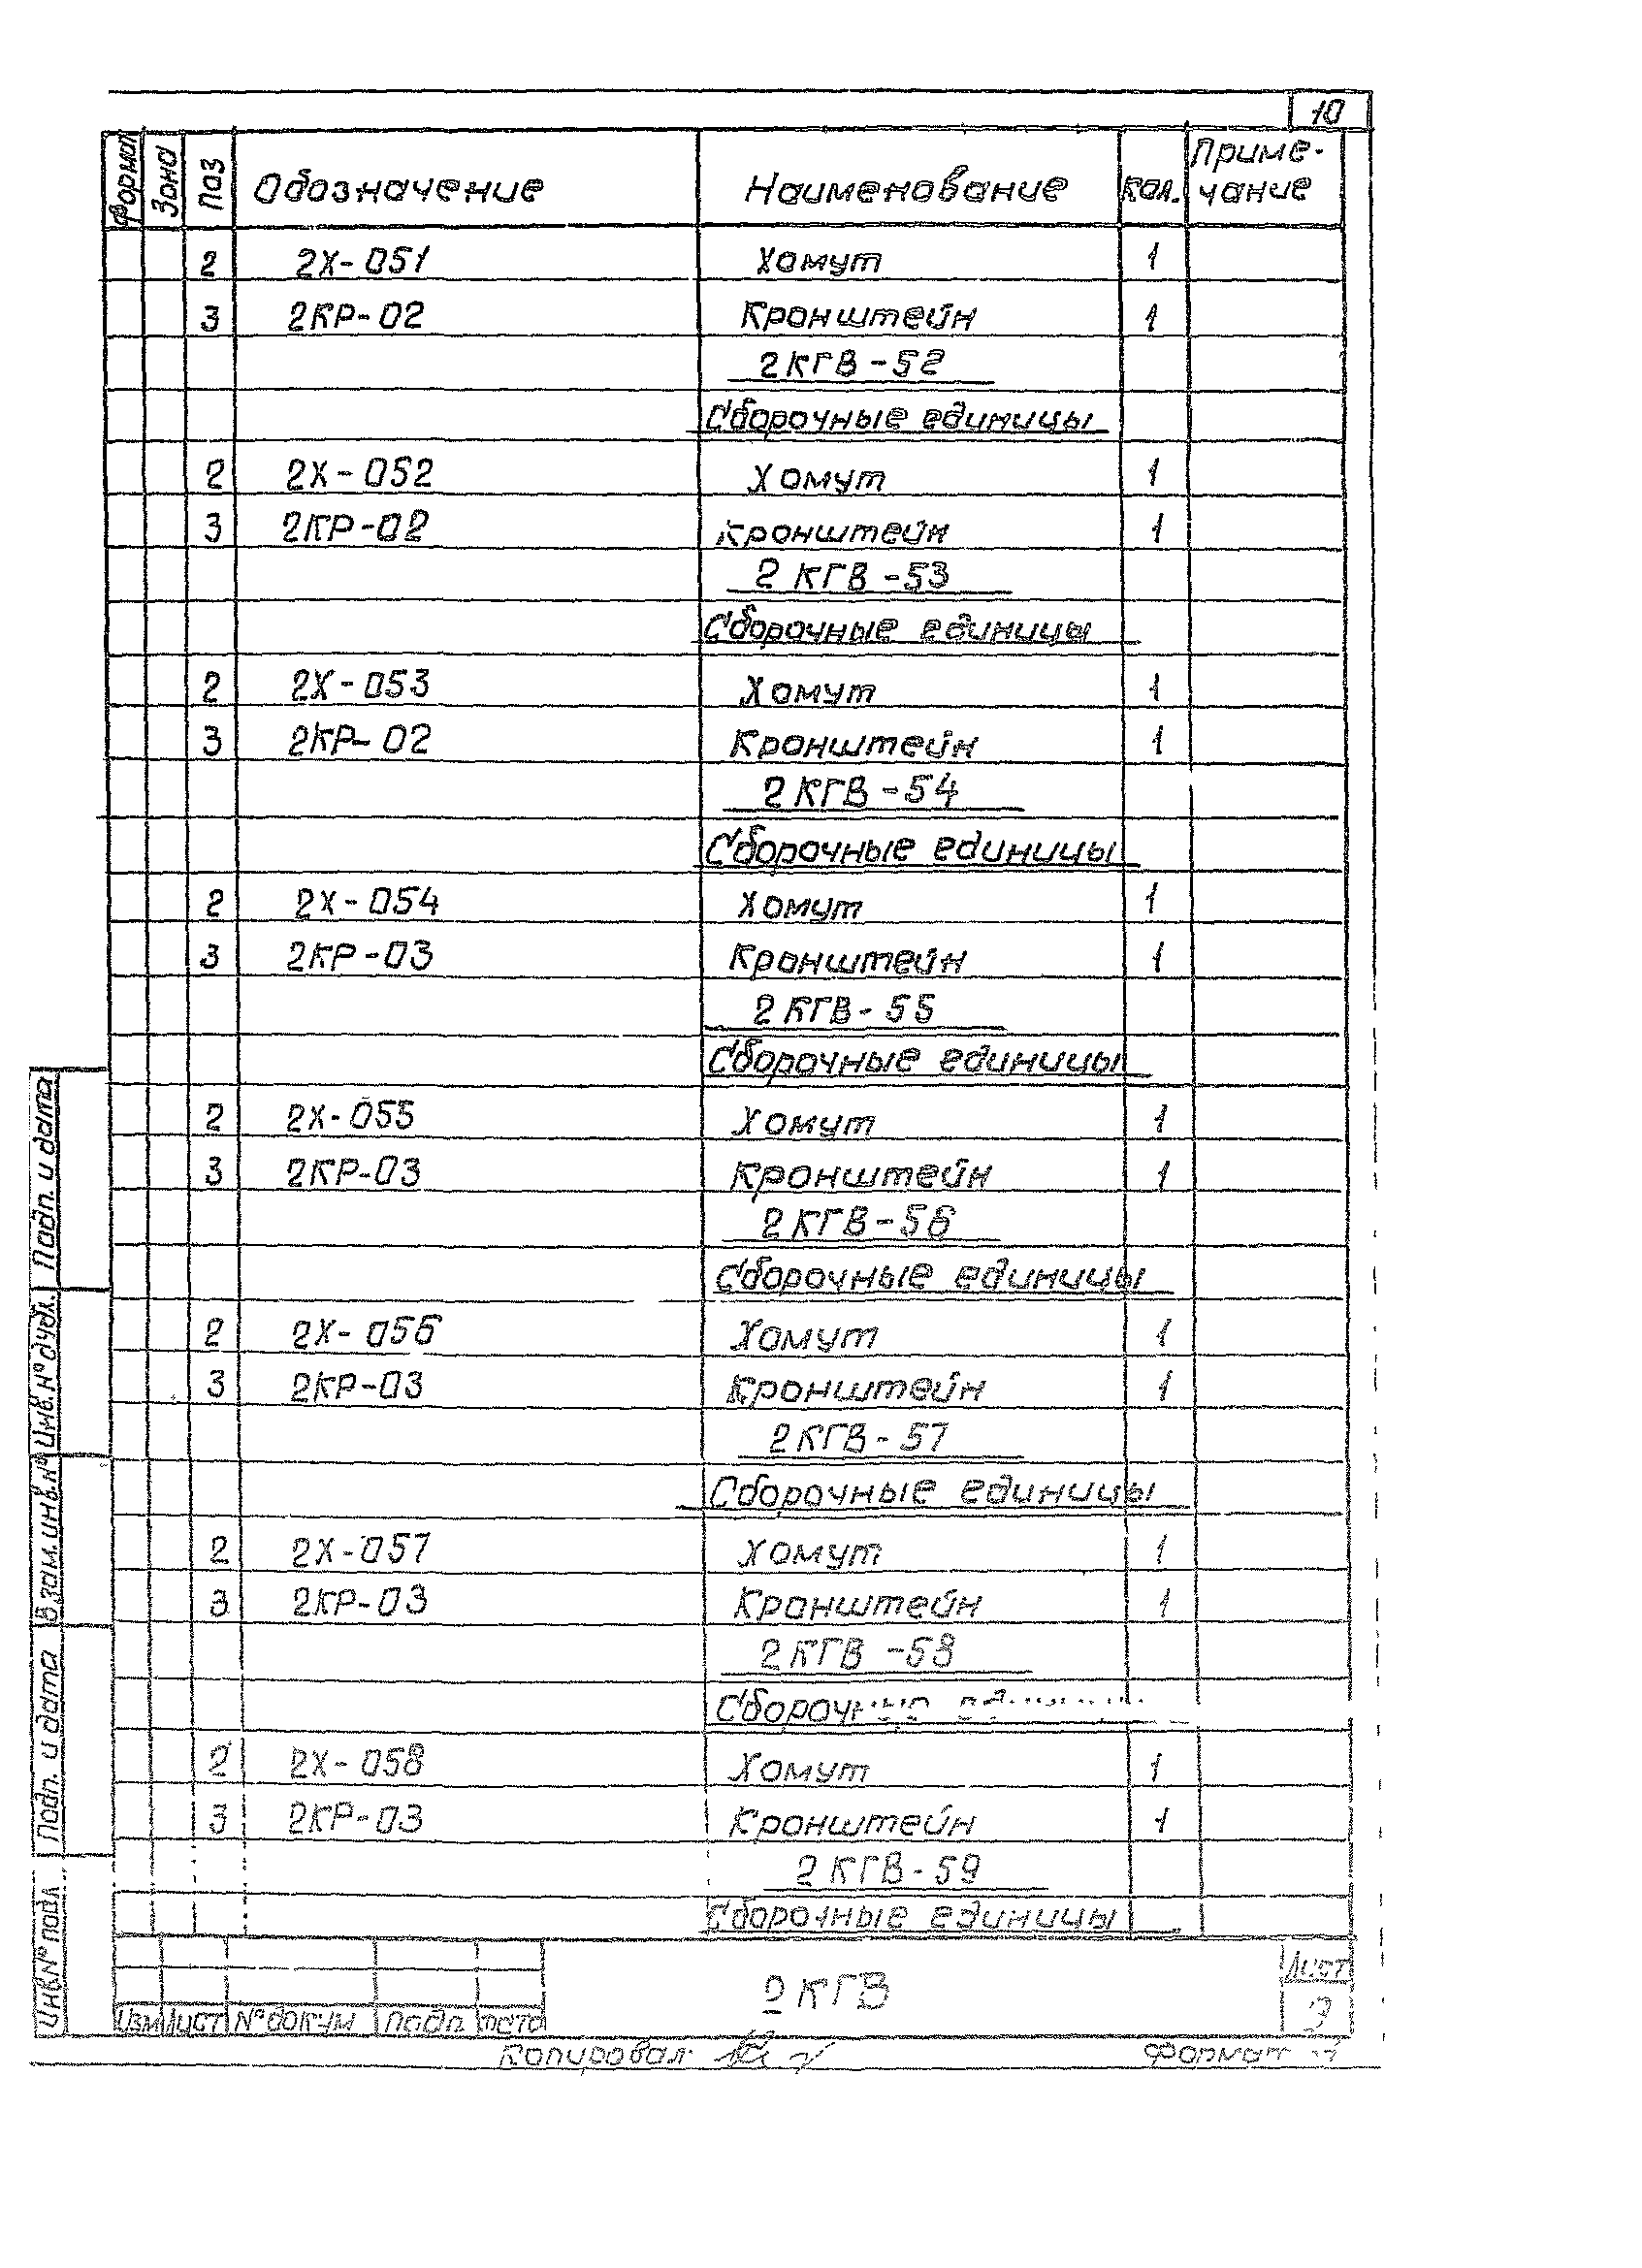 10
Формат Зона Поз Обозначение Наименование Кол. Приме-
чание
2 2Х-051 Хомут 1
3 2КР-02 Кронштейн 1
2КГВ-52
Сборочные единицы
2 2Х-052 Хомут 1
3 2КР-02 Кронштейн 1
2КГВ-53
Сборочные единицы
2 2Х-053 Хомут 1
3 2КР-02 Кронштейн 1
2КГВ-54
Сборочные единицы
2 2Х-054 Хомут 1
3 2КР-03 Кронштейн 1
2КГВ-55
Сборочные единицы
2 2Х-055 Хомут 1
3 2КР-03 Кронштейн 1
2КГВ-56
Сборочные единицы
2 2Х-056 Хомут 1
3 2КР-03 Кронштейн 1
2КГВ-57
Сборочные единицы
2 2Х-057 Хомут 1
3 2КР-03 Кронштейн 1
2КГВ-58
Сборочные единицы
2 2Х-058 Хомут 1
3 2КР-03 Кронштейн 1
2КГВ-59
Сборочные единицы
Подп. и дата
Инв. № дубл.
Взам. инв. №
Подп. и дата
Инв № подл
Изм Лист № докум Подп Дата
2КГВ
Лист
9
Копировал:
Формат